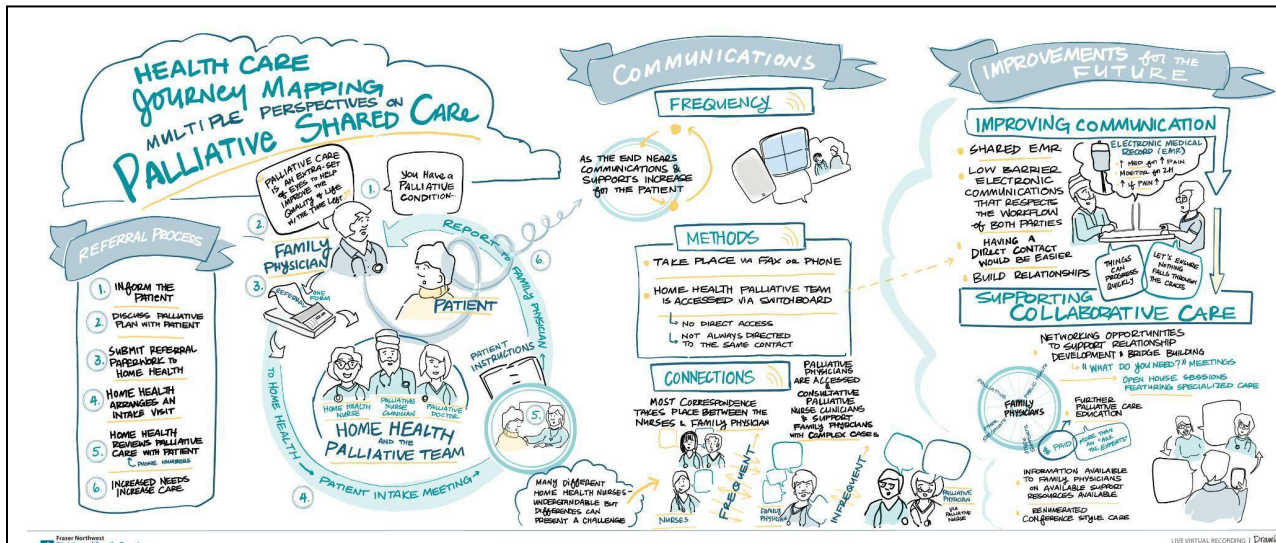 HEALTH CARE
JOURNEY MAPPING
MULTIPLE PERSPECTIVES ON
PALLIATIVE SHARED CARE
REFERRAL PROCESS
1. INFORM THE
PATIENT
2. DISCUSS PALLIATIVE
PLAN WITH PATIENT
3. SUBMIT REFERRAL
PAPERWORK TO
HOME HEALTH
4. HOME HEALTH
ARRANGES AN
INTAKE VISIT
5. HOME HEALTH
REVIEWS PALLIATIVE
CARE WITH PATIENT
PHONE NUMBERS
6. INCREASED NEEDS
INCREASE CARE
"PALLIATIVE CARE
IS AN EXTRA-SET
OF EYES TO HELP
IMPROVE THE
QUALITY OF LIFE
W/ THE TIME LEFT"
1.
YOU HAVE A
PALLIATIVE
CONDITION-
2.
FAMILY
PHYSICIAN
3.
REFERRAL
ONE
FORM
PATIENT
REPORT TO FAMILY PHYSICIAN
6.
TO HOME HEALTH
HOME HEALTH
NURSE
PALLIATIVE
NURSE
CLINICIAN
PALLIATIVE
DOCTOR
HOME HEALTH
AND THE
PALLIATIVE TEAM
4.
PATIENT INTAKE MEETING
PATIENT
INSTRUCTIONS
5.
COMMUNICATIONS
FREQUENCY
AS THE END NEARS
COMMUNICATIONS &
SUPPORTS INCREASE
for THE PATIENT
METHODS
TAKE PLACE VIA FAX OR PHONE
HOME HEALTH PALLIATIVE TEAM
IS ACCESSED VIA SWITCHBOARD
NO DIRECT ACCESS
NOT ALWAYS DIRECTED
TO THE SAME CONTACT
CONNECTIONS
MOST CORRESPONDENCE
TAKES PLACE BETWEEN THE
NURSES & FAMILY PHYSICIAN
PALLIATIVE
PHYSICIANS
ARE ACCESSED
&
CONSULTATIVE
PALLIATIVE
NURSE CLINICIANS
& SUPPORT
FAMILY PHYSICIANS
WITH COMPLEX CASES
MANY DIFFERENT
HOME HEALTH NURSES-
UNDERSTANDABLE BUT
DIFFERENCES CAN
PRESENT A CHALLENGE
NURSES
FREQUENT
FAMILY
PHYSICIAN
INFREQUENT
PALLIATIVE
PHYSICIAN
VIA
PALLIATIVE
NURSE
IMPROVEMENTS for THE
FUTURE
IMPROVING COMMUNICATION
SHARED EMR
LOW BARRIER
ELECTRONIC
COMMUNICATIONS
THAT RESPECTS
THE WORKFLOW
OF BOTH PARTIES
HAVING A
DIRECT CONTACT
WOULD BE EASIER
BUILD RELATIONSHIPS
ELECTRONIC MEDICAL
RECORD (EMR)
↑ MED for ↑ PAIN
MONITOR for 2H
↑ if PAIN ↑
THINGS
CAN
PROGRESS
QUICKLY
LET'S ENSURE
NOTHING
FALLS THROUGH
THE CRACKS
SUPPORTING
COLLABORATIVE CARE
NETWORKING OPPORTUNITIES
TO SUPPORT RELATIONSHIP
DEVELOPMENT & BRIDGE BUILDING
"WHAT DO YOU NEED?" MEETINGS
OPEN HOUSE SESSIONS
FEATURING SPECIALIZED CARE
PALLIATIVE
PUBLIC HEALTH
FAMILY
PHYSICIANS
FURTHER
PALLIATIVE CARE
EDUCATION
$ PAID
MORE THAN
AN "ASK
THE EXPERTS"
INFORMATION AVAILABLE
TO FAMILY PHYSICIANS
ON AVAILABLE SUPPORT
RESOURCES AVAILABLE
RENUMERATED
CONFERENCE STYLE CARE
Fraser Northwest
LIVE VIRTUAL RECORDING |